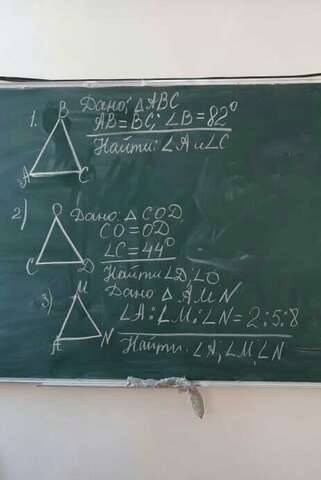 1. Дано: △ABC
AB=BC; ∠B=82°
Найти: ∠A и ∠C
B
A C
2) Дано: △COD
CO=OD
∠C=44°
Найти ∠D; ∠O
O
C D
3) Дано △AMN
∠A:∠M:∠N=2:5:8
Найти: ∠A, ∠M, ∠N
M
A N